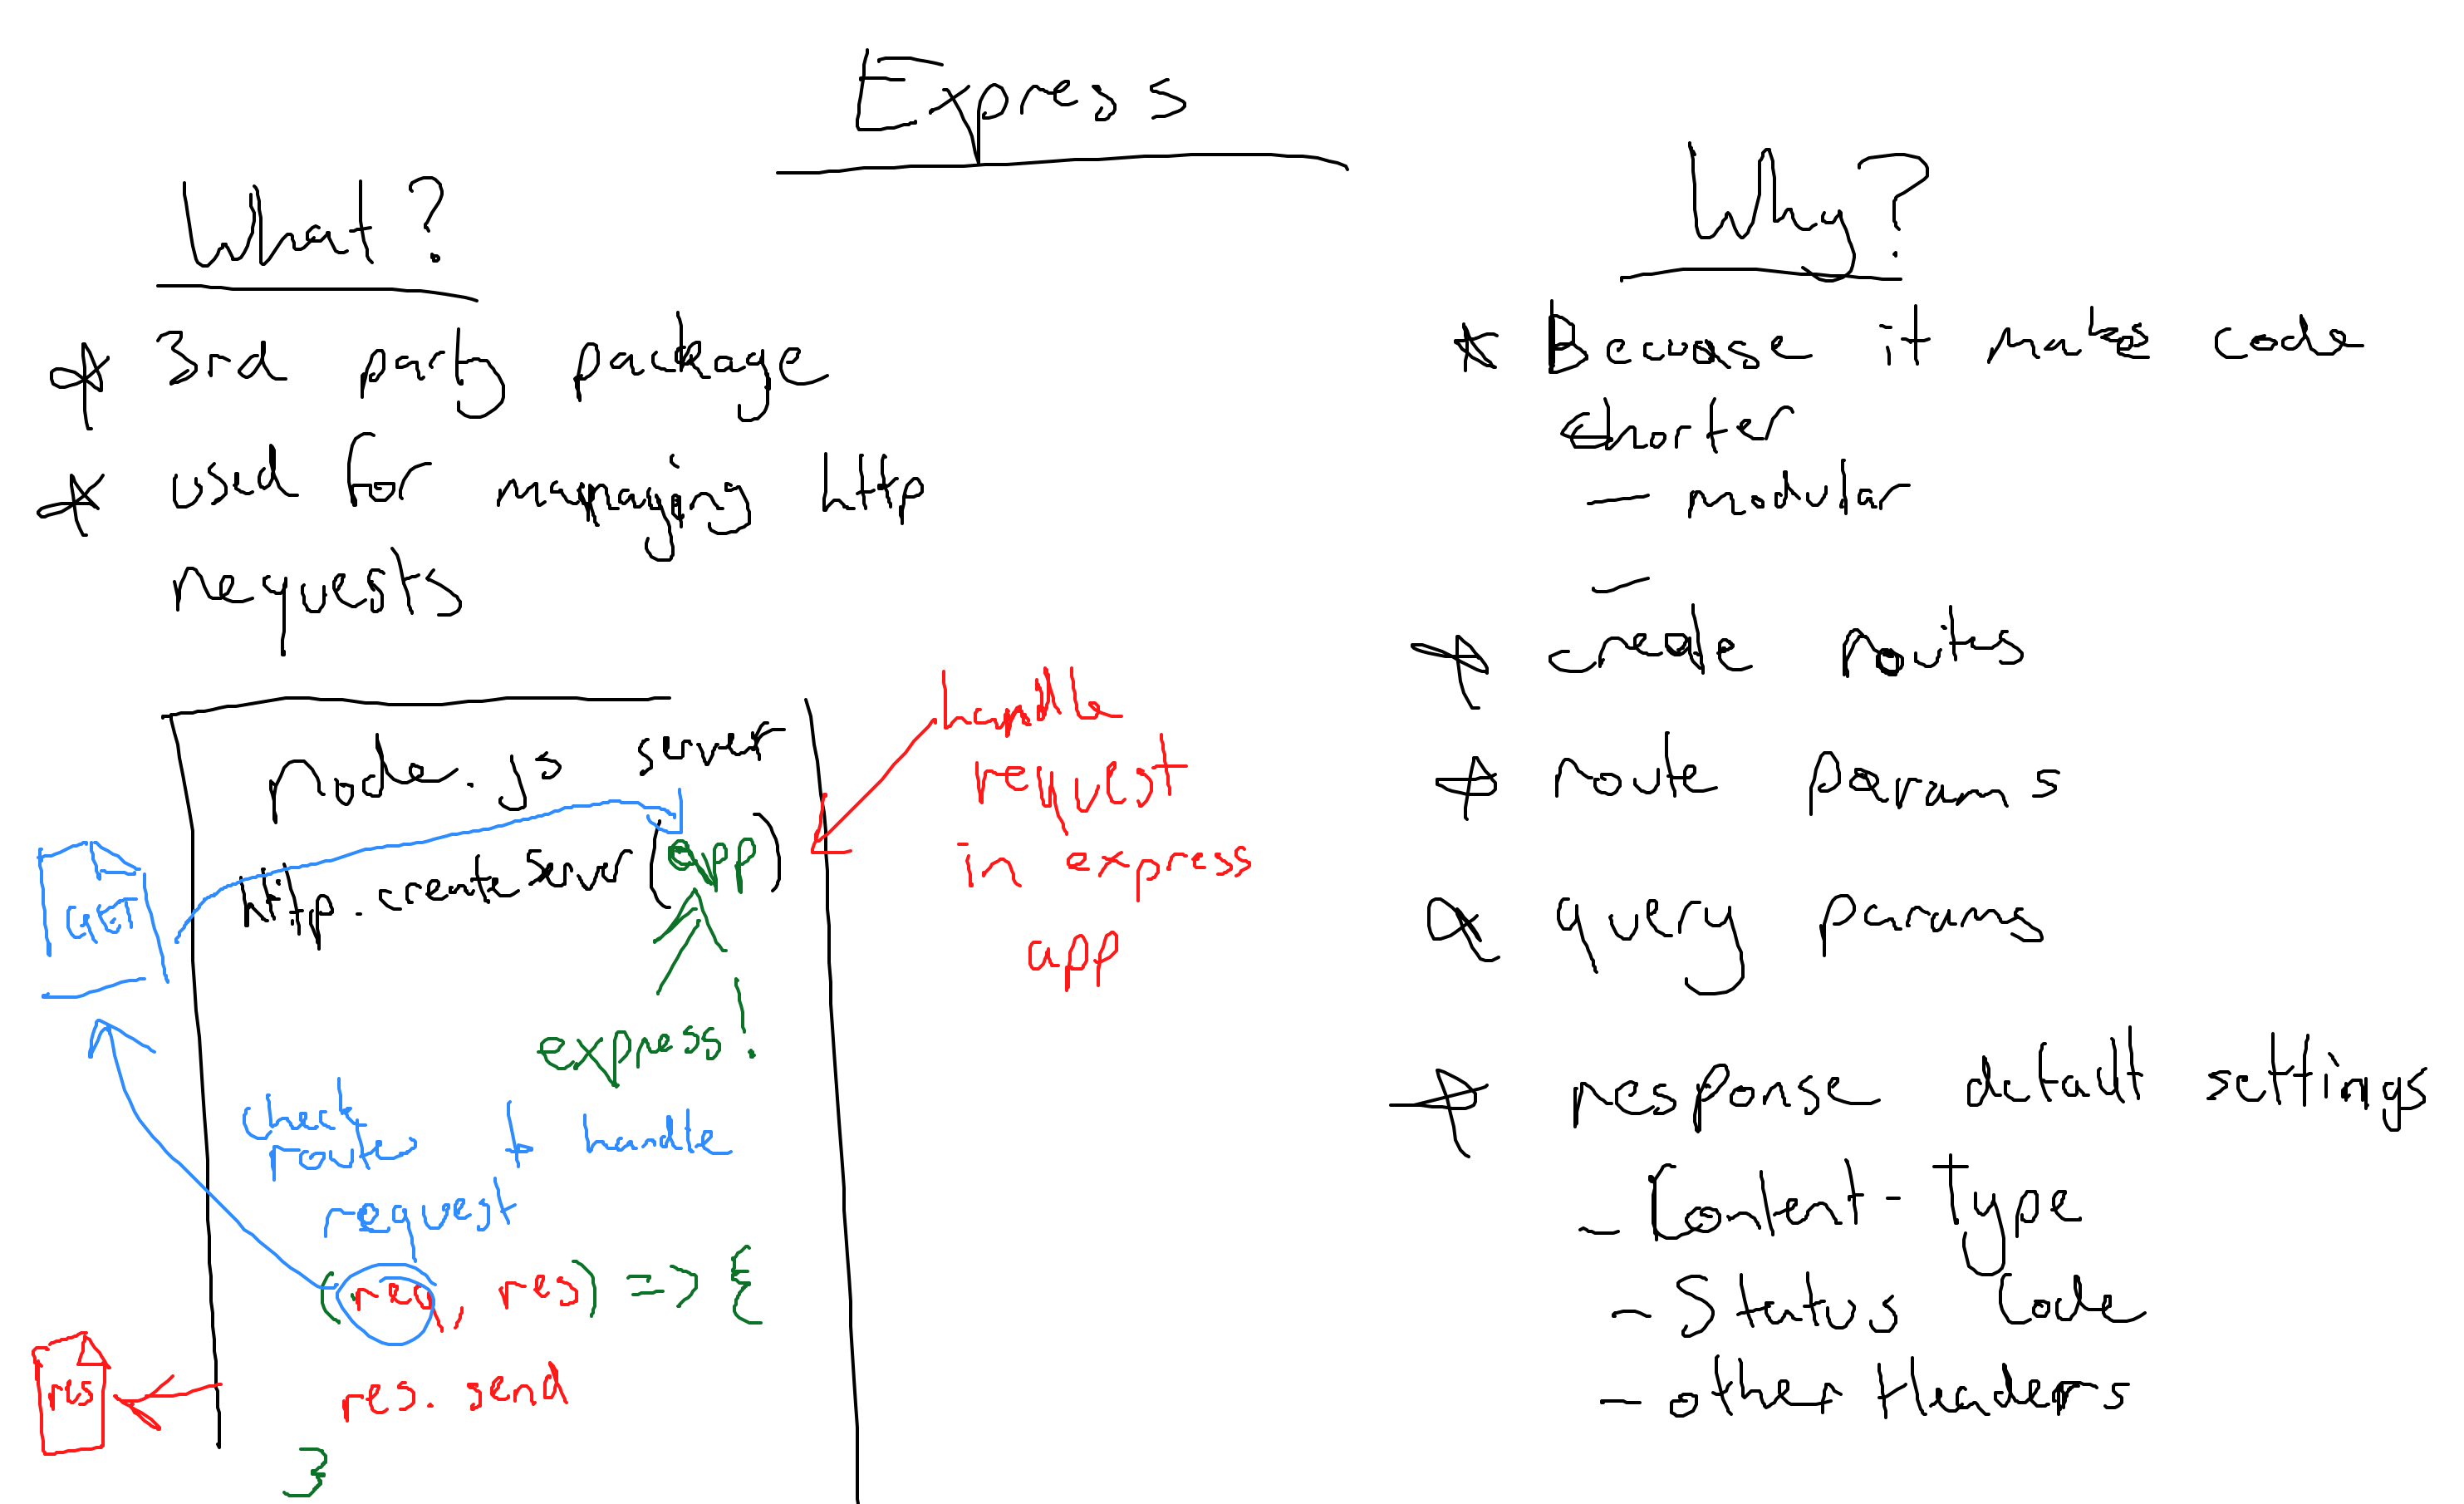 Express
What?
3rd party package
used for managing http
requests
node.js server
http.createServer(app)
express!
check
routes + handle
request
(req, res) => {
res.send
}
req
res
handle
request
in express
app
Why?
Because it makes code
shorter
- modular
-
create routes
route params
query params
response default settings
- Content-Type
- Status Code
- other Headers